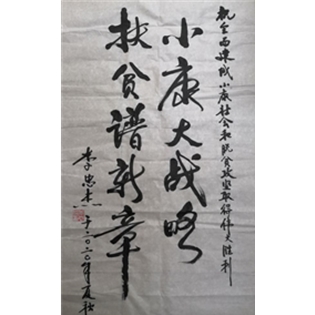 祝全面建成小康社会和脱贫攻坚取得伟大胜利
小康大战略
扶贫谱新章
李忠杰 于二〇二〇年夏秋